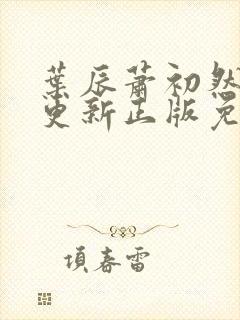 葉辰蕭初然
更新正版免
項春雷